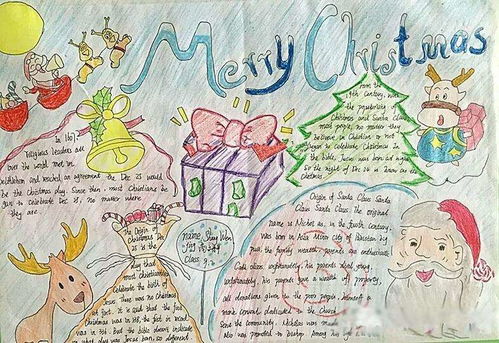 Merry Christmas
In 1167
religious leaders are
over the world met in
Bethlehem and reached an agreement the Dec 25 would
be the Christmas day. Since then, most Christians be
gan to celebrate Dec 25, no matter where
they are.
From the
19th century, with
the popularity of
Christmas and Santa Claus
most people, no matter they
believe in Christian or not
began to celebrate Christmas. In
the bible, Jesus was born at night,
so the night of Dec 24 is known as the
Christmas
name
Class
the Origin of
Christmas Dec
25 is the
day that
most christians
Celebrate the birth of
Jesus. There was no Christmas
at first. It is said that the first
Christmas was in 138, the first in record
was in 336. But the bible doesn't indicate
on what day was Jesus born, so different
Origin of Santa Claus Santa
Claus Santa Claus, the original
name is Nicholas, in the fourth century,
was born in Asia Minor city of
the family wealth, parents are enthusiastic
Catholics, unfortunately, his parents died
unfortunately, his parents gave a wealth of property,
all donations given to the poor people, himself
more toward dedicated to the Church
serve the community. Nicholas was
also was promoted to bishop. Among his